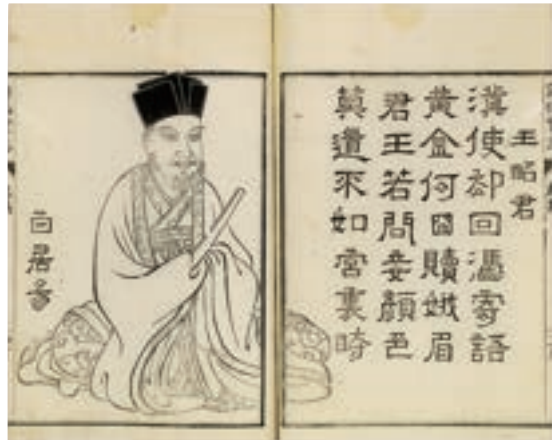 王昭君
漢使却回憑寄語
黄金何日贖娥眉
君王若問妾顔色
莫道不如宮裏時
白居易